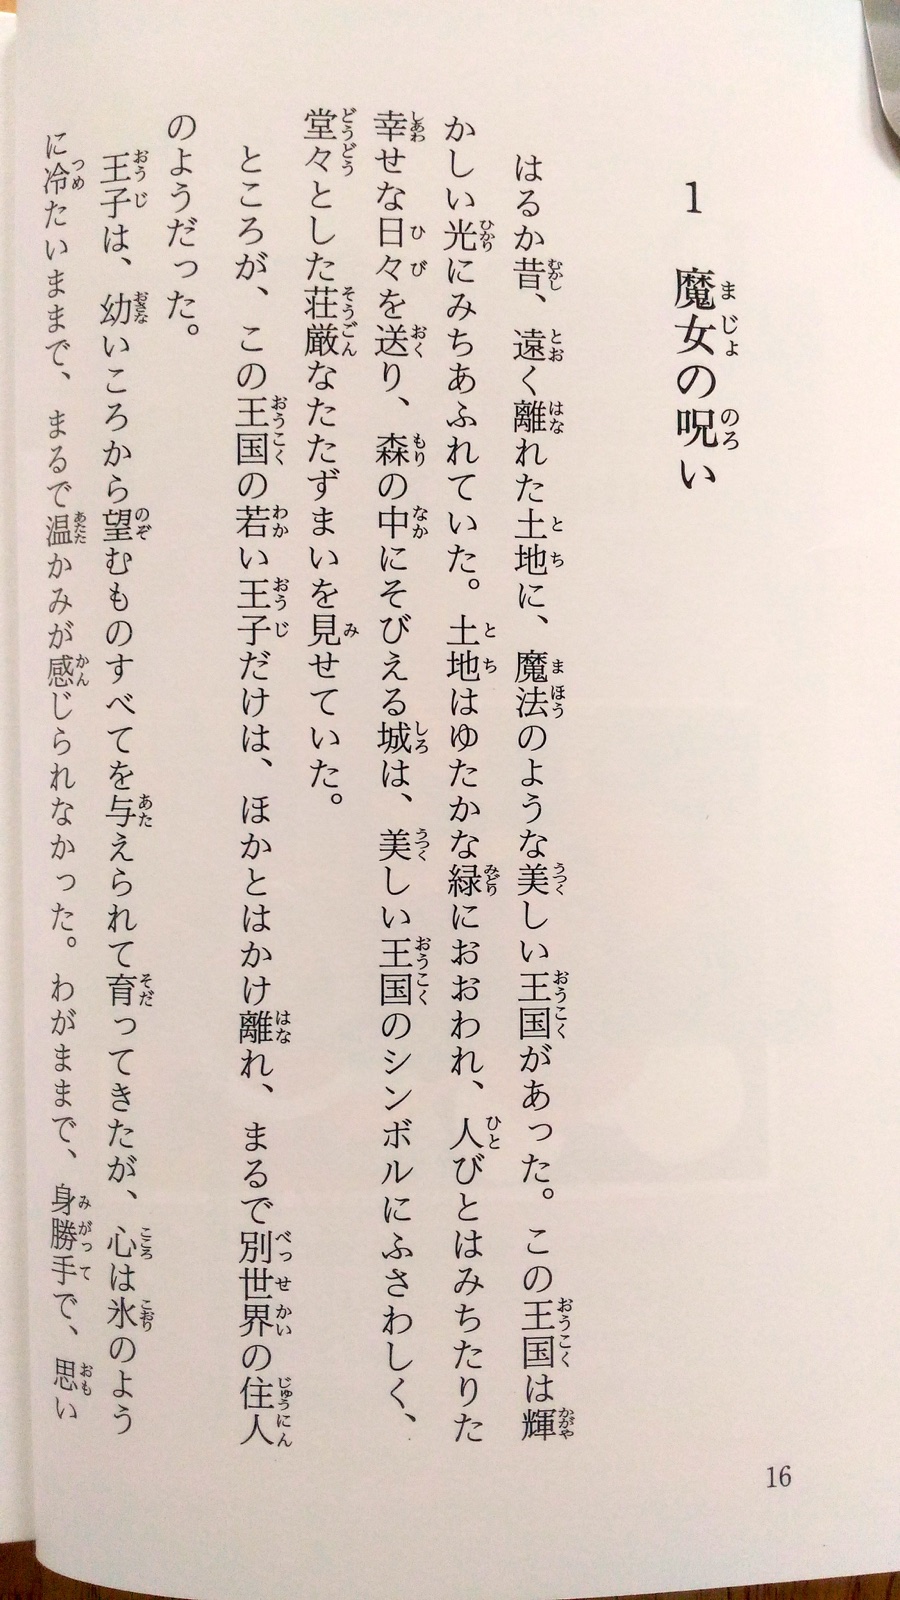 1 魔女の呪い
はるか昔、遠く離れた土地に、魔法のような美しい王国があった。この王国は輝
かしい光にみちあふれていた。土地はゆたかな緑におおわれ、人びとはみちたりた
幸せな日々を送り、森の中にそびえる城は、美しい王国のシンボルにふさわしく、
堂々とした荘厳なたたずまいを見せていた。
ところが、この王国の若い王子だけは、ほかとはかけ離れ、まるで別世界の住人
のようだった。
王子は、幼いころから望むものすべてを与えられて育ってきたが、心は氷のよう
に冷たいままで、まるで温かみが感じられなかった。わがままで、身勝手で、思い
16